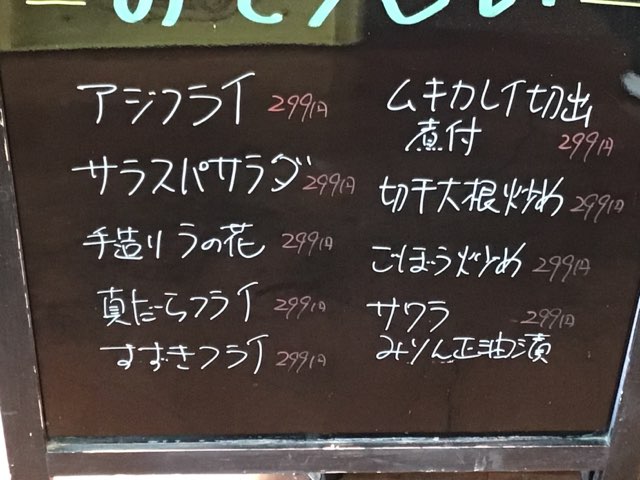 アジフライ 299円
サラスパサラダ 299円
手造りうの花 299円
真だらフライ 299円
すずきフライ 299円
ムキカレイ切出
煮付 299円
切干大根炒め 299円
ごぼう炒め 299円
サワラ 299円
みりん正油漬